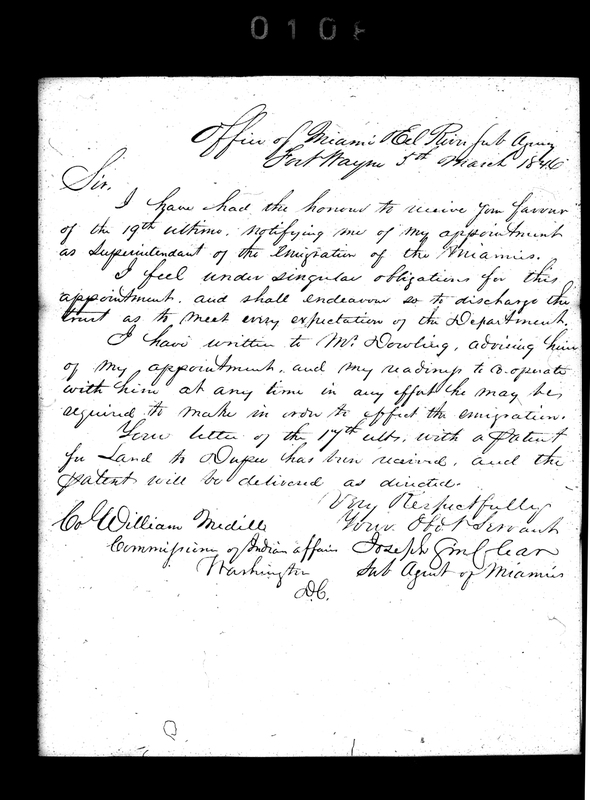 010
Office of Miami & Eel River Sub Agency
Fort Wayne 5th March 1846
Sir.
I have had the honour to receive your favour
of the 19th ultimo, notifying me of my appointment
as Superintendant of the Emigration of the Miamis.
I feel under singular obligations for this
appointment, and shall endeavour so to discharge the
trust as to meet every expectation of the Department.
I have written to Mr. Dowling, advising him
of my appointment, and my readiness to co-operate
with him at any time in any effort he may be
required to make in order to effect the emigration.
Your letter of the 17th ulto, with a patent
for Land to Dupee has been received, and the
patent will be delivered as directed.
Very Respectfully
Your Obt Servant
Col William Medill
Commissioner of Indian affairs
Joseph Sinclear
Washington
Sub Agent of Miamies
D.C.